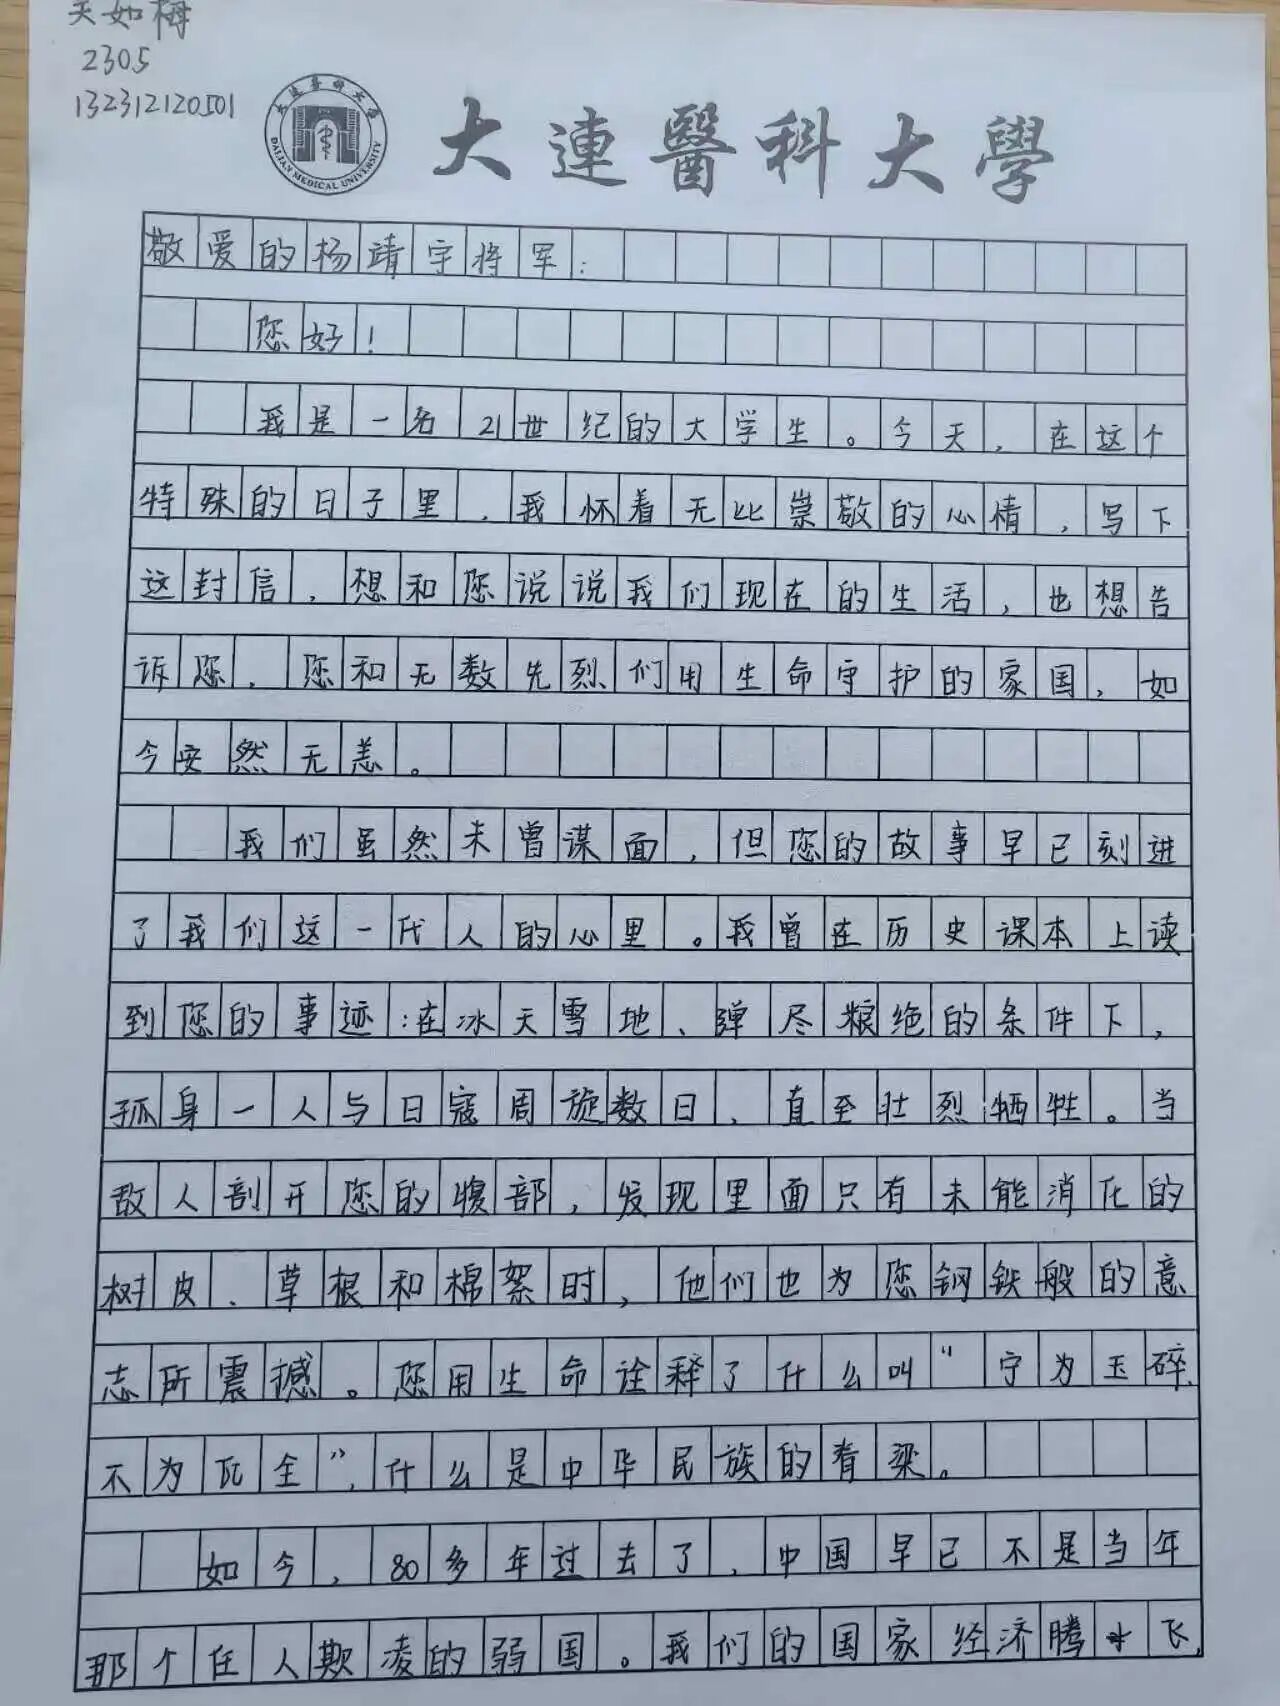 如梅
2305
13231212050​1
大連醫科大學
大连医科大学
DALIAN MEDICAL UNIVERSITY
敬爱的杨靖宇将军：
您好！
我是一名21世纪的大学生。今天，在这个
特殊的日子里，我怀着无比崇敬的心情，写下
这封信，想和您说说我们现在的生活，也想告
诉您，您和无数先烈们用生命守护的家国，如
今安然无恙。
我们虽然未曾谋面，但您的故事早已刻进
了我们这一代人的心里。我曾在历史课本上读
到您的事迹：在冰天雪地、弹尽粮绝的条件下，
孤身一人与日寇周旋数日，直至壮烈牺牲。当
敌人剖开您的腹部，发现里面只有未能消化的
树皮、草根和棉絮时，他们也为您钢铁般的意
志所震撼。您用生命诠释了什么叫“宁为玉碎，
不为瓦全”，什么是中华民族的脊梁。
如今，80多年过去了，中国早已不是当年
那个任人欺凌的弱国。我们的国家经济腾飞，